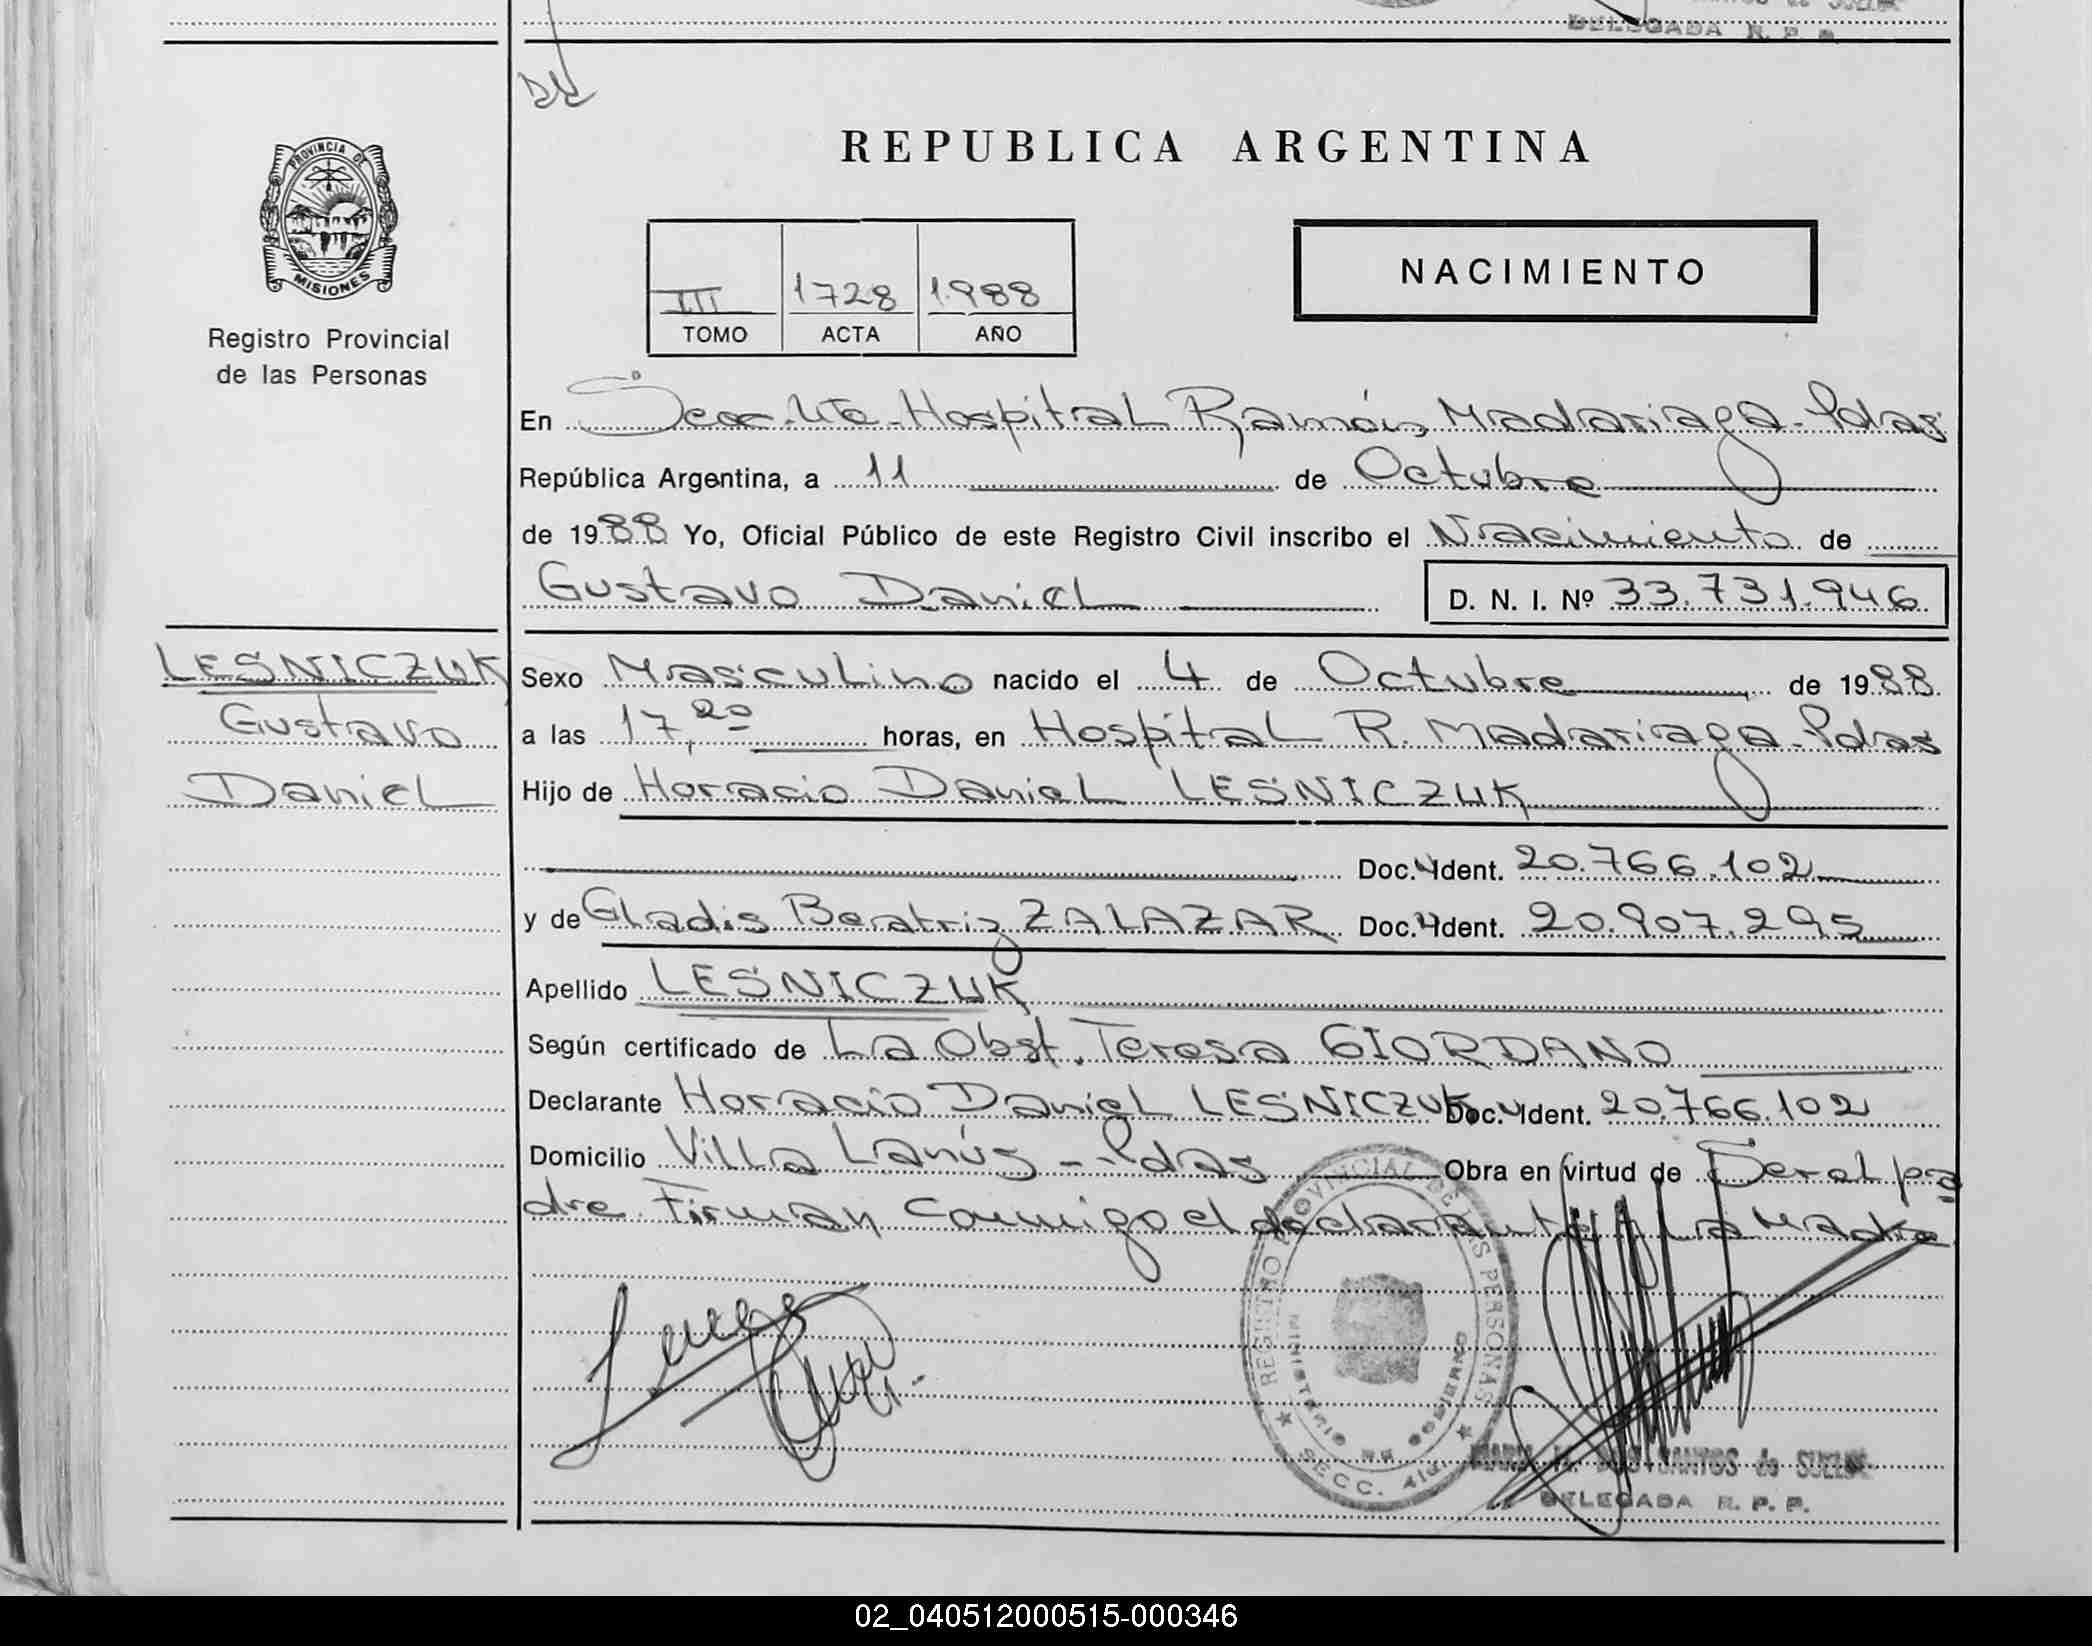 DELEGADA R. P. P.
REPUBLICA ARGENTINA
PROVINCIA DE
MISIONES
Registro Provincial
de las Personas
III 1728 1.988
TOMO ACTA AÑO
NACIMIENTO
En Secc. Hospital Ramón Madariaga - Pdas
República Argentina, a 11 de Octubre
de 1988 Yo, Oficial Público de este Registro Civil inscribo el Nacimiento de
Gustavo Daniel D. N. I. Nº 33.731.946
LESNICZUK
Gustavo
Daniel
Sexo Masculino nacido el 4 de Octubre de 1988.
a las 17,20 horas, en Hospital R. Madariaga - Pdas
Hijo de Horacio Daniel LESNICZUK
Doc. Ident. 20.766.102
y de Gladis Beatriz ZALAZAR Doc. Ident. 20.907.295
Apellido LESNICZUK
Según certificado de La Obst. Teresa GIORDANO
Declarante Horacio Daniel LESNICZUK Doc. Ident. 20.766.102
Domicilio Villa Lanús - Pdas Obra en virtud de Ser el pa
dre. Firman Conmigo el declarante y La Madre
REGISTRO PROVINCIAL DE LAS PERSONAS
MINISTERIO DE GOBIERNO
SECC.
SANTOS de
DELEGADA R. P. P.
02_040512000515-000346